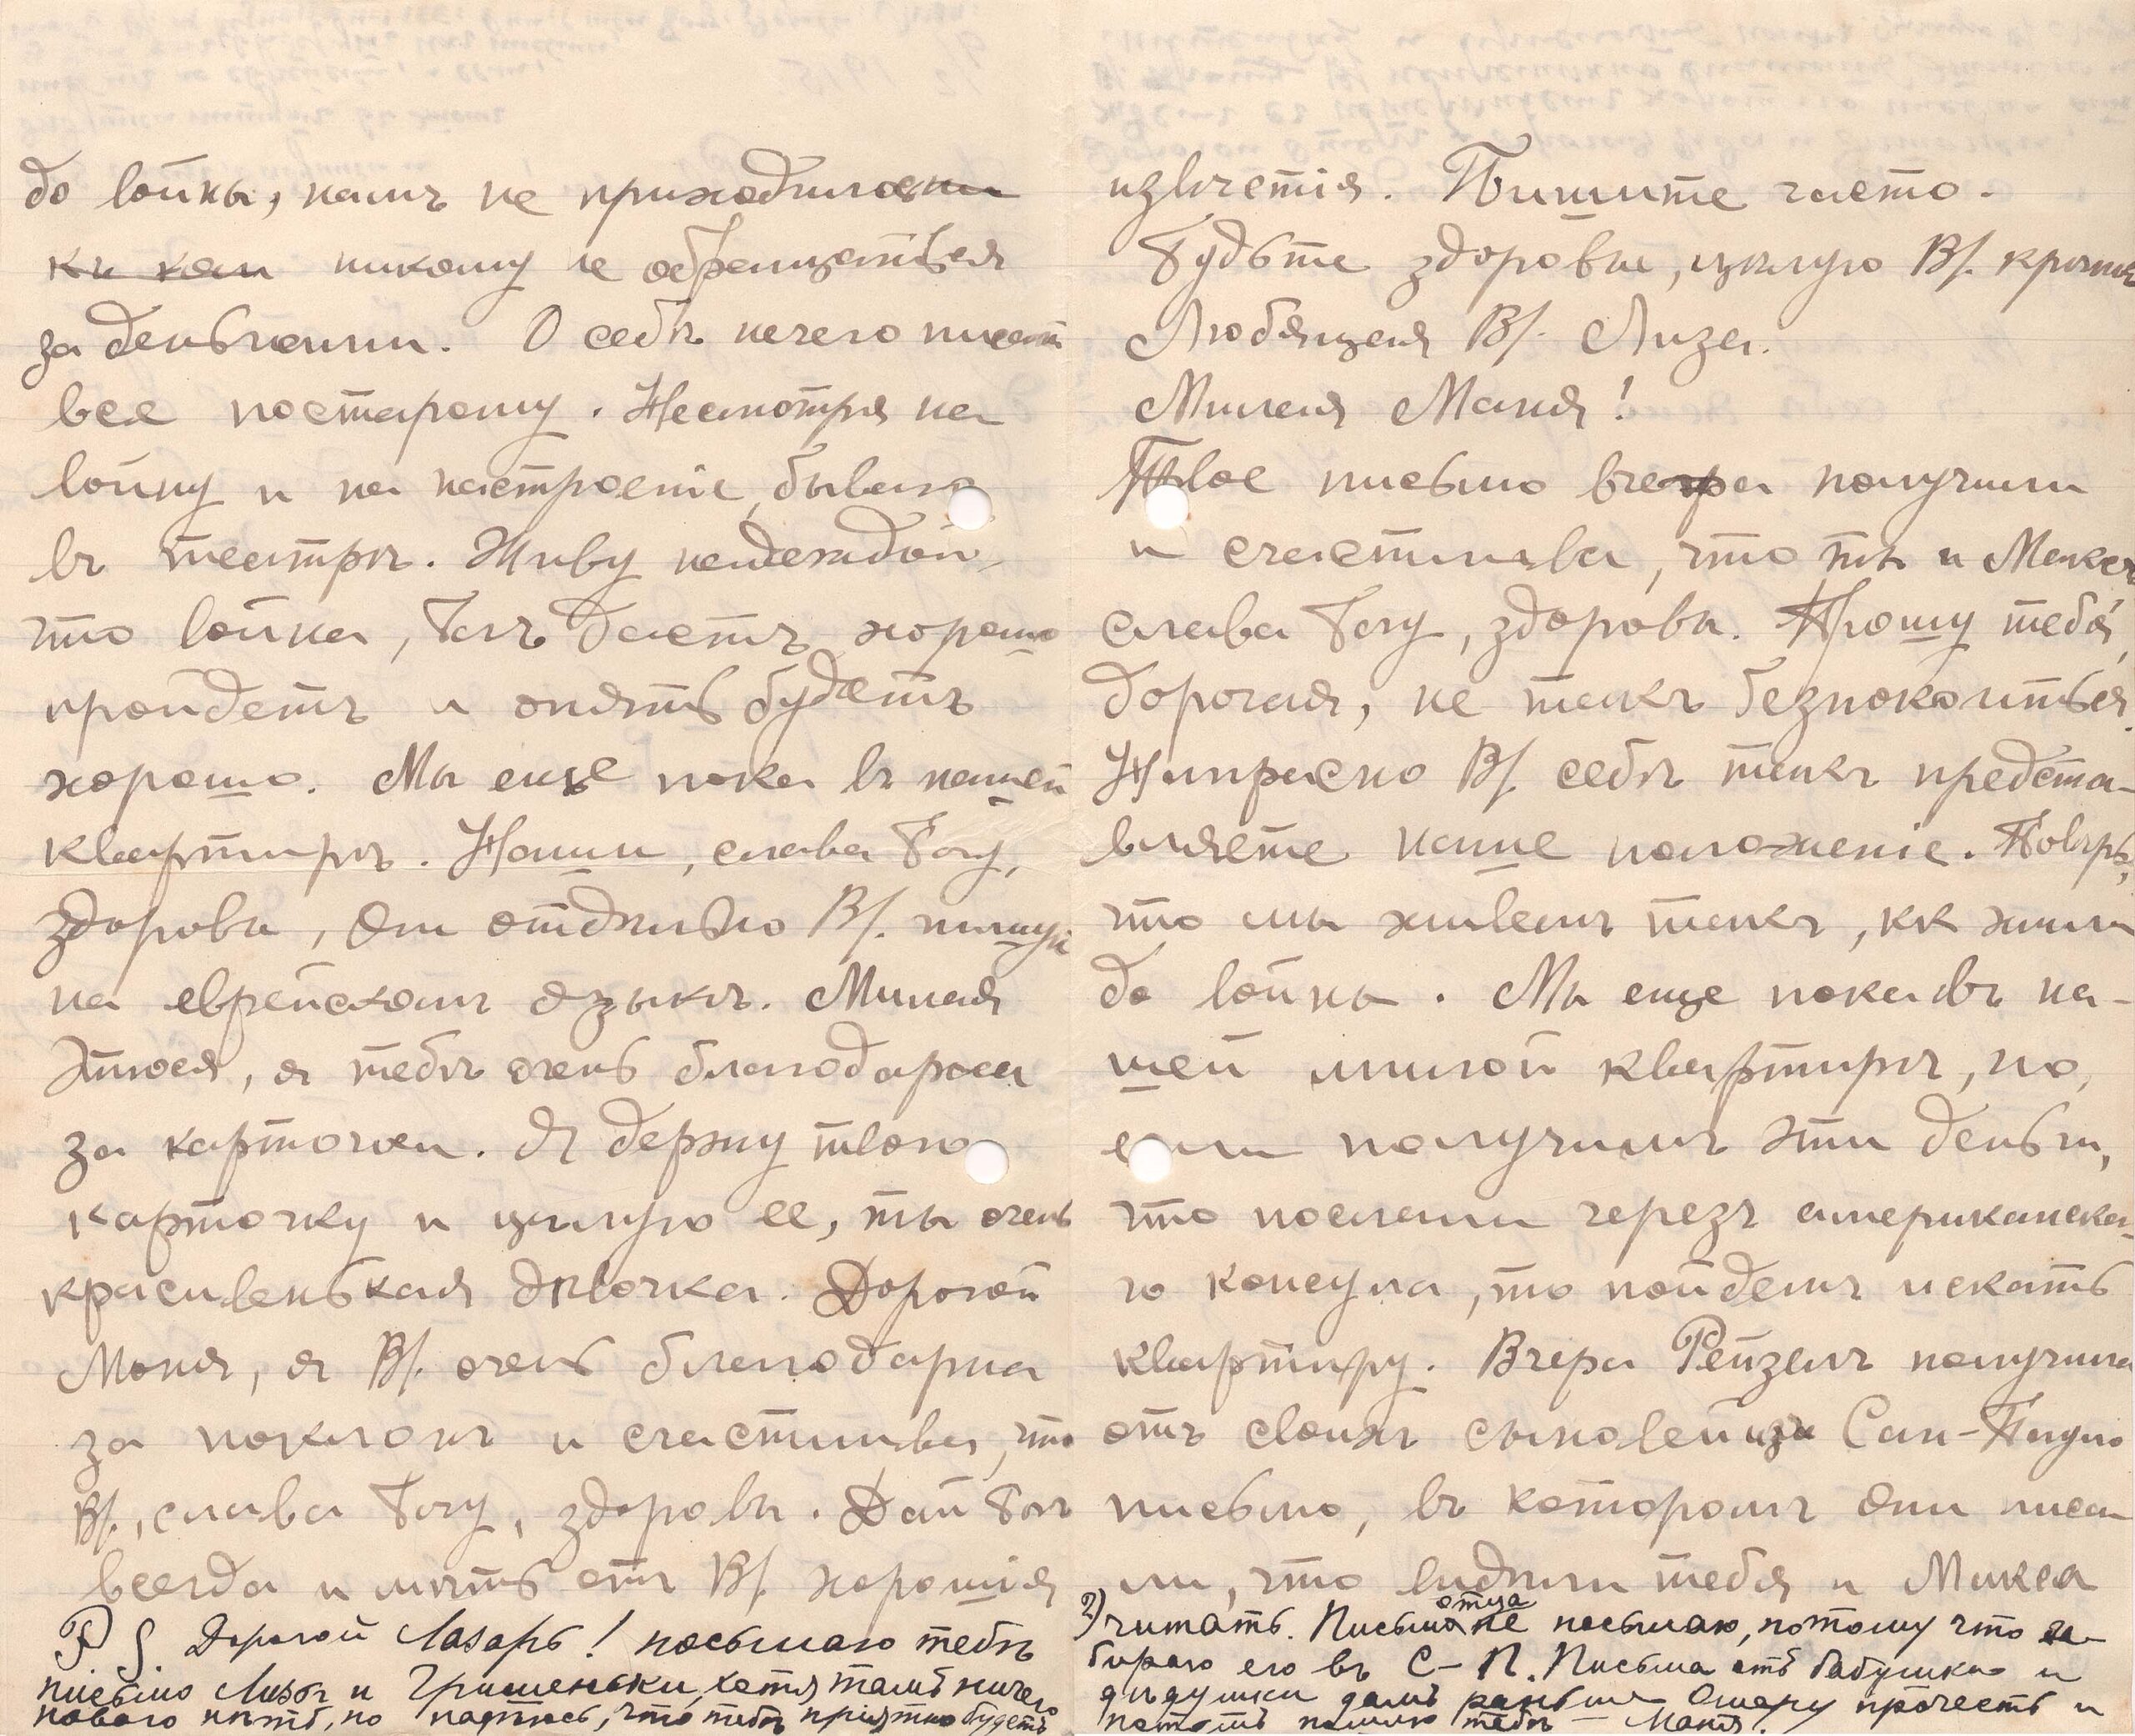 до войны, намъ не приходилось
къ ком никому не обращаться
за деньгами. О себѣ нечего писать
все постарому. Несмотря на
войну и на настроеніе, бываю
въ театрѣ. Живу надеждой,
что война, Богъ дастъ, хорошо
пройдетъ и опять будетъ
хорошо. Мы еще пока въ нашей
квартирѣ. Наши, слава Богу,
здоровы, они отдѣльно В/. пишутъ
на еврейскомъ языкѣ. Милая
Этюся, я тебѣ очень благодарна
за карточки. Я держу твою
карточку и цѣлую ее, ты очень
красивенькая дѣвочка. Дорогой
Моня, я В/. очень благодарна
за поклонъ и счастлива, что
В/., слава Богу, здоровы. Дай Богъ
всегда имѣть отъ В/. хорошія
P. S. Дорогой Лазарь! посылаю тебѣ
письмо Лизы и Гришеньки, хотя тамъ ничего
новаго нѣтъ, но надѣюсь, что тебѣ пріятно будетъ
извѣстія. Пишите часто.
Будьте здоровы, цѣлую В/. крѣпко
Любящая В/. Лиза.
Милая Маня!
Твое письмо вчера получили
и счастлива, что ты и Макса
слава Богу, здоровы. Прошу тебя,
дорогая, не такъ безпокоиться.
Напрасно В/. себѣ такъ предста-
вляете наше положеніе. Повѣрь,
что мы живемъ такъ, кк жили
до войны. Мы еще пока въ на-
шей милой квартирѣ, но,
если получимъ эти деньги,
что послали черезъ американска-
го консула, то пойдемъ искать
квартиру. Вчера Рейзелъ получила
отъ своихъ сыновей изъ Сан-Пауло
письмо, въ которомъ они писа-
ли, что видѣли тебя и Макса
2) читать. Письма отца не посылаю, потому что за-
бираю его въ С-П. Письма отъ бабушки и
дѣдушки дамъ раньше Ошеру прочесть и
потомъ пошлю тебѣ Маня.